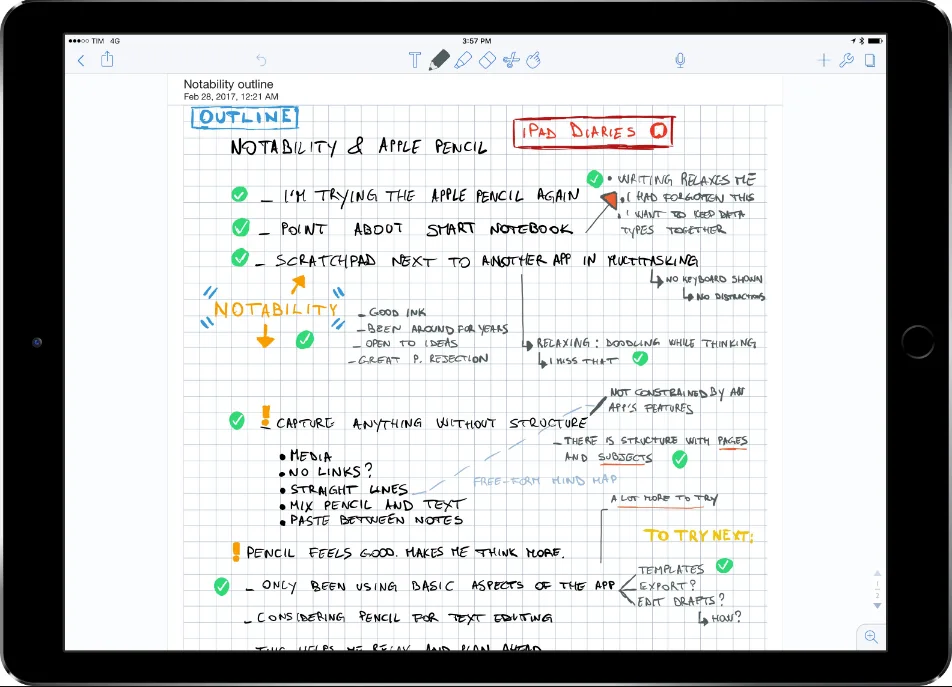 TIM 4G
3:57 PM
Notability outline
Feb 28, 2017, 12:21 AM
OUTLINE
iPAD DIARIES
NOTABILITY & APPLE PENCIL
– I'M TRYING THE APPLE PENCIL AGAIN
• WRITING RELAXES ME
• I HAD FORGOTTEN THIS
• I WANT TO KEEP DATA
TYPES TOGETHER
– POINT ABOUT SMART NOTEBOOK
– SCRATCHPAD NEXT TO ANOTHER APP IN MULTITASKING
NO KEYBOARD SHOWN
NO DISTRACTIONS
NOTABILITY
– GOOD INK
– BEEN AROUND FOR YEARS
– OPEN TO IDEAS
– GREAT P. REJECTION
RELAXING: DOODLING WHILE THINKING
I MISS THAT
NOT CONSTRAINED BY AN
APP'S FEATURES
! CAPTURE ANYTHING WITHOUT STRUCTURE
– THERE IS STRUCTURE WITH PAGES
AND SUBJECTS
• MEDIA
• NO LINKS?
• STRAIGHT LINES
• MIX PENCIL AND TEXT
• PASTE BETWEEN NOTES
FREE-FORM MIND MAP
A LOT MORE TO TRY
TO TRY NEXT:
! PENCIL FEELS GOOD. MAKES ME THINK MORE.
– ONLY BEEN USING BASIC ASPECTS OF THE APP
TEMPLATES
EXPORT?
EDIT DRAFTS?
HOW?
– CONSIDERING PENCIL FOR TEXT EDITING
THIS HELPS ME RELAX AND PLAN AHEAD
1
2